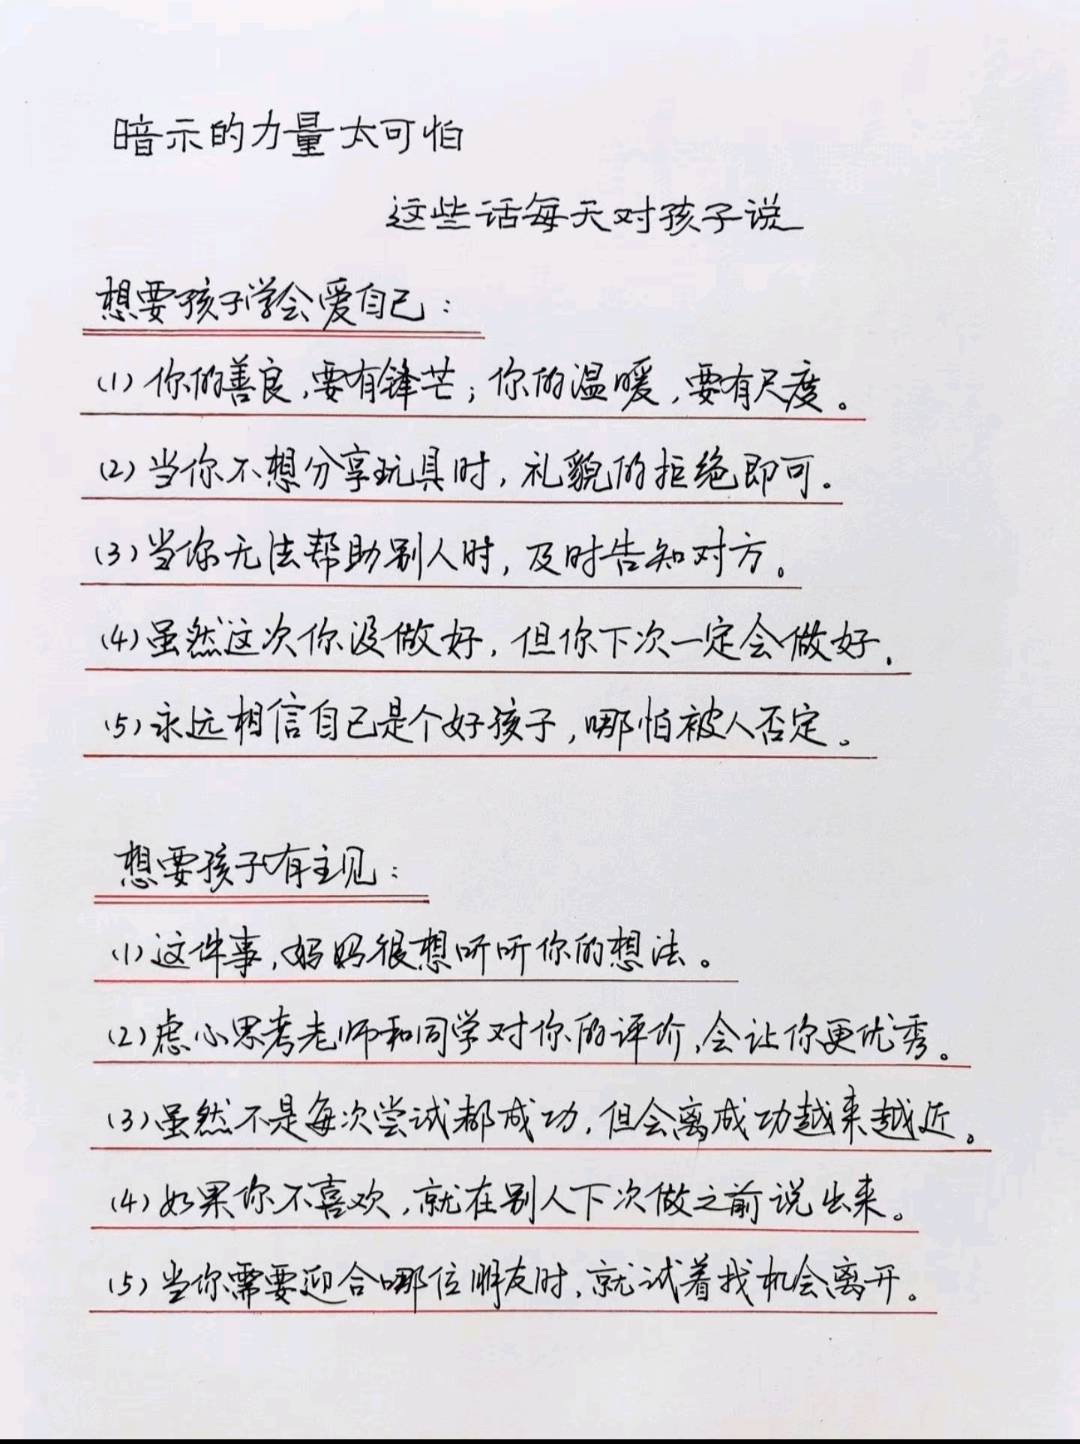 暗示的力量太可怕
这些话每天对孩子说
想要孩子学会爱自己：
(1)你的善良，要有锋芒；你的温暖，要有尺度。
(2)当你不想分享玩具时，礼貌的拒绝即可。
(3)当你无法帮助别人时，及时告知对方。
(4)虽然这次你没做好，但你下次一定会做好.
(5)永远相信自己是个好孩子，哪怕被人否定。
想要孩子有主见：
(1)这件事，妈妈很想听听你的想法。
(2)虑心思考老师和同学对你的评价，会让你更优秀。
(3)虽然不是每次尝试都成功，但会离成功越来越近。
(4)如果你不喜欢，就在别人下次做之前说出来。
(5)当你需要迎合哪位朋友时，就试着找机会离开。